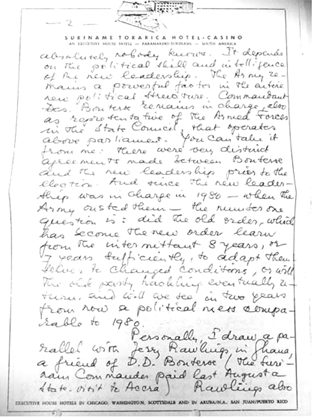 — 2
SURINAME TORARICA HOTEL-CASINO
AN EXECUTIVE HOUSE HOTEL — PARAMARIBO/SURINAME — SOUTH AMERICA
absolutely nobody knows. It depends
on the political skill and intelligence
of the new leadership. The Army re-
mains a powerful factor in the entire
new political structure. Commandant
Bouterse remains in charge, also
as representative of the Armed Forces
in the State Council, that operates
above parliament. You can take it
from me: there were very distinct
agreements made between Bouterse
and the new leadership prior to the
election. And since the new leader-
ship was in charge in 1980 — when the
Army ousted them — the number one
question is: did the old order, which
has become the new order learn
from the intermittent 8 years, or
7 years sufficiently, to adapt them-
selves, to changed conditions, or will
the old party heckling eventually re-
turn, and will we see in two years
from now a political mess compa-
rable to 1980.
Personally I draw a pa-
rallel with Jerry Rawlings in Ghana,
a friend of D.D. Bouterse (the Suri-
nam Commander paid last August a
State-visit to Accra) Rawlings also
EXECUTIVE HOUSE HOTELS IN CHICAGO, WASHINGTON, SCOTTSDALE AND IN ARUBA/N.A. SAN JUAN/PUERTO RICO